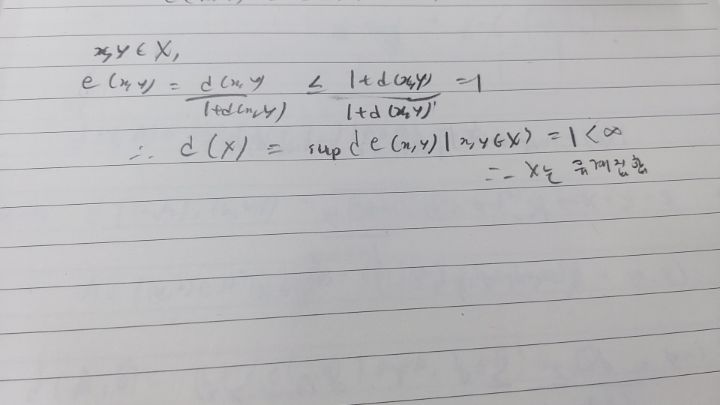 x,y ∈ X,
e(x,y) = d(x,y)/1+d(x,y) ≤ 1+d(x,y)/1+d(x,y) = 1
∴ d(X) = sup{e(x,y) | x,y∈X} = 1 < ∞
∴ X는 유계집합